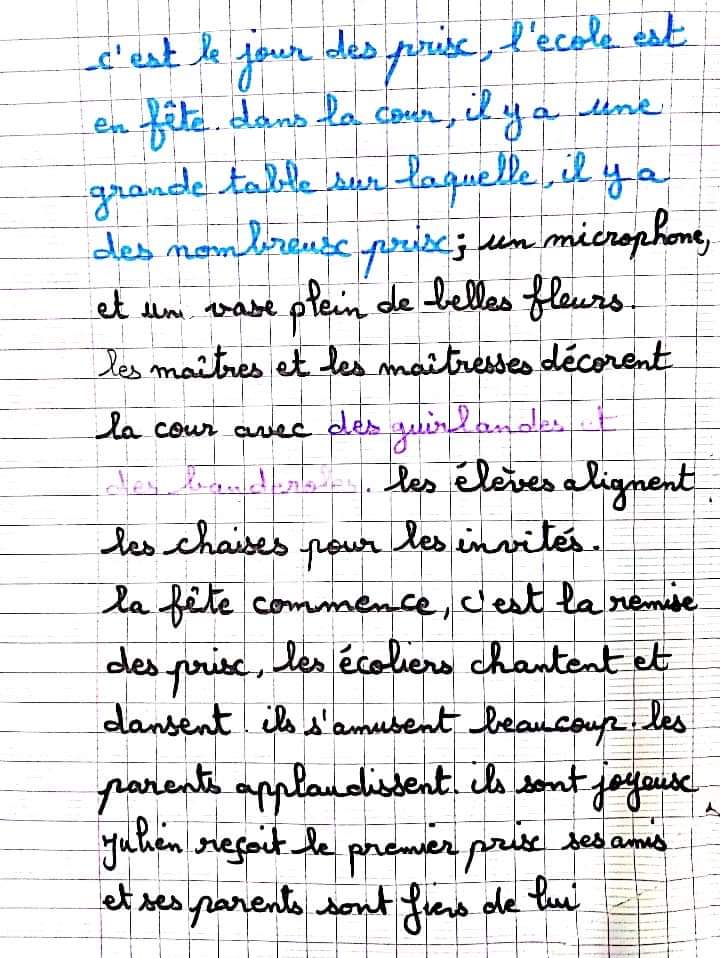 c'est le jour des prix, l'ecole est
en fête. dans la cour, il y a une
grande table sur laquelle, il y a
des nombreux prix; un microphone,
et un vase plein de belles fleurs.
les maîtres et les maîtresses décorent
la cour avec des guirlandes et
des banderoles. les élèves alignent
les chaises pour les invités.
la fête commence, c'est la remise
des prix, les écoliers chantent et
dansent. ils s'amusent beaucoup. les
parents applaudissent. ils sont joyeux
Julien reçoit le premier prix ses amis
et ses parents sont fiers de lui